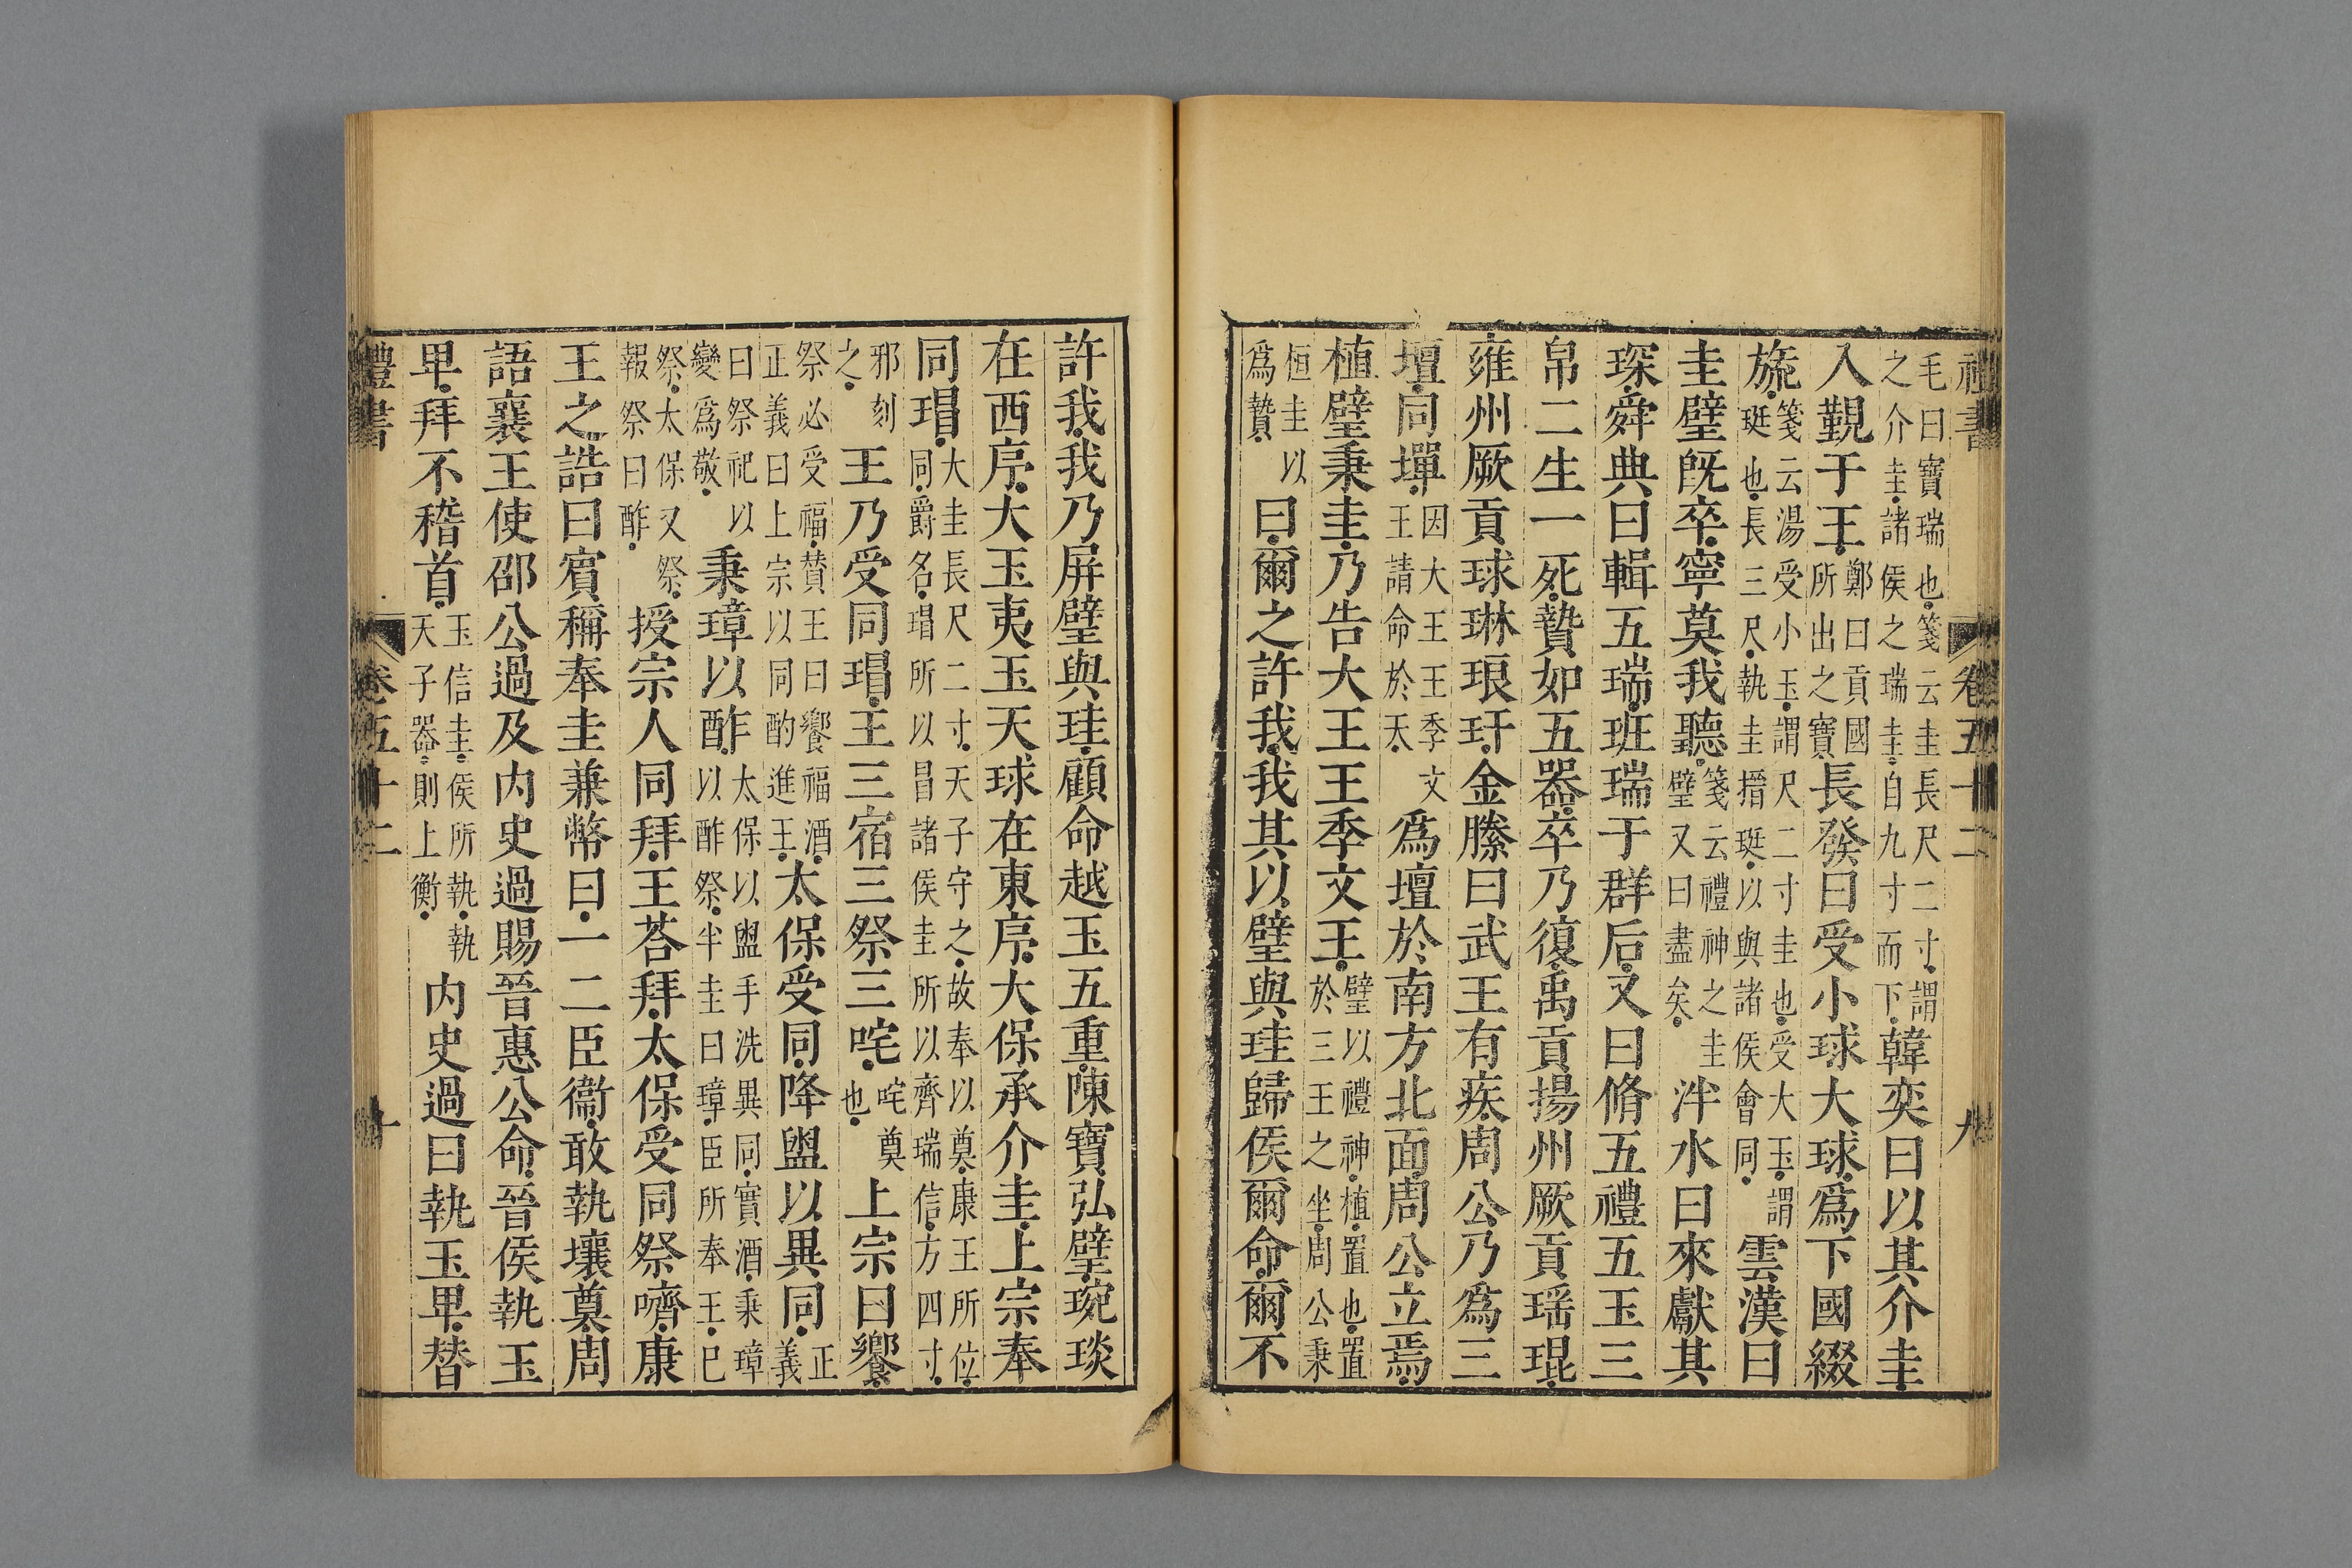 禮書 卷五十二 九
毛曰寶瑞也箋云圭長尺二寸謂之介圭諸侯之瑞圭自九寸而下韓奕曰以其介圭
入覲于王鄭曰貢國所出之寶長發曰受小球大球爲下國綴
旒箋云湯受小玉謂尺二寸圭也受大玉謂珽也長三尺執圭搢珽以與諸侯會同雲漢曰
圭璧既卒寧莫我聽箋云禮神之圭璧又曰盡矣泮水曰來獻其
琛舜典曰輯五瑞班瑞于群后又曰脩五禮五玉三
帛二生一死贄如五器卒乃復禹貢揚州厥貢瑶琨
雍州厥貢球琳琅玕金縢曰武王有疾周公乃爲三
壇同墠因大王王季文王請命於天爲壇於南方北面周公立焉
植璧秉圭乃告大王王季文王璧以禮神植置也置於三王之坐周公秉
桓圭以爲贄曰爾之許我我其以璧與珪歸俟爾命爾不
許我我乃屏璧與珪顧命越玉五重陳寶弘璧琬琰
在西序大玉夷玉天球在東序大保承介圭上宗奉
同瑁大圭長尺二寸天子守之故奉以奠康王所位同爵名瑁所以冒諸侯圭所以齊瑞信方四寸
邪刻之王乃受同瑁王三宿三祭三咤咤奠也上宗曰饗
祭必受福賛王曰饗福酒正義曰上宗以同酌進王太保受同降盥以異同正義
曰祭祀以變爲敬秉璋以酢太保以盥手洗異同實酒秉璋以酢祭半圭曰璋臣所奉王已
祭太保又祭報祭曰酢授宗人同拜王荅拜太保受同祭嚌康
王之誥曰賓稱奉圭兼幣曰一二臣衞敢執壤奠周
語襄王使邵公過及内史過賜晉惠公命晉侯執玉
卑拜不稽首玉信圭侯所執執天子器則上衡内史過曰執玉卑替
禮書 卷五十二 十